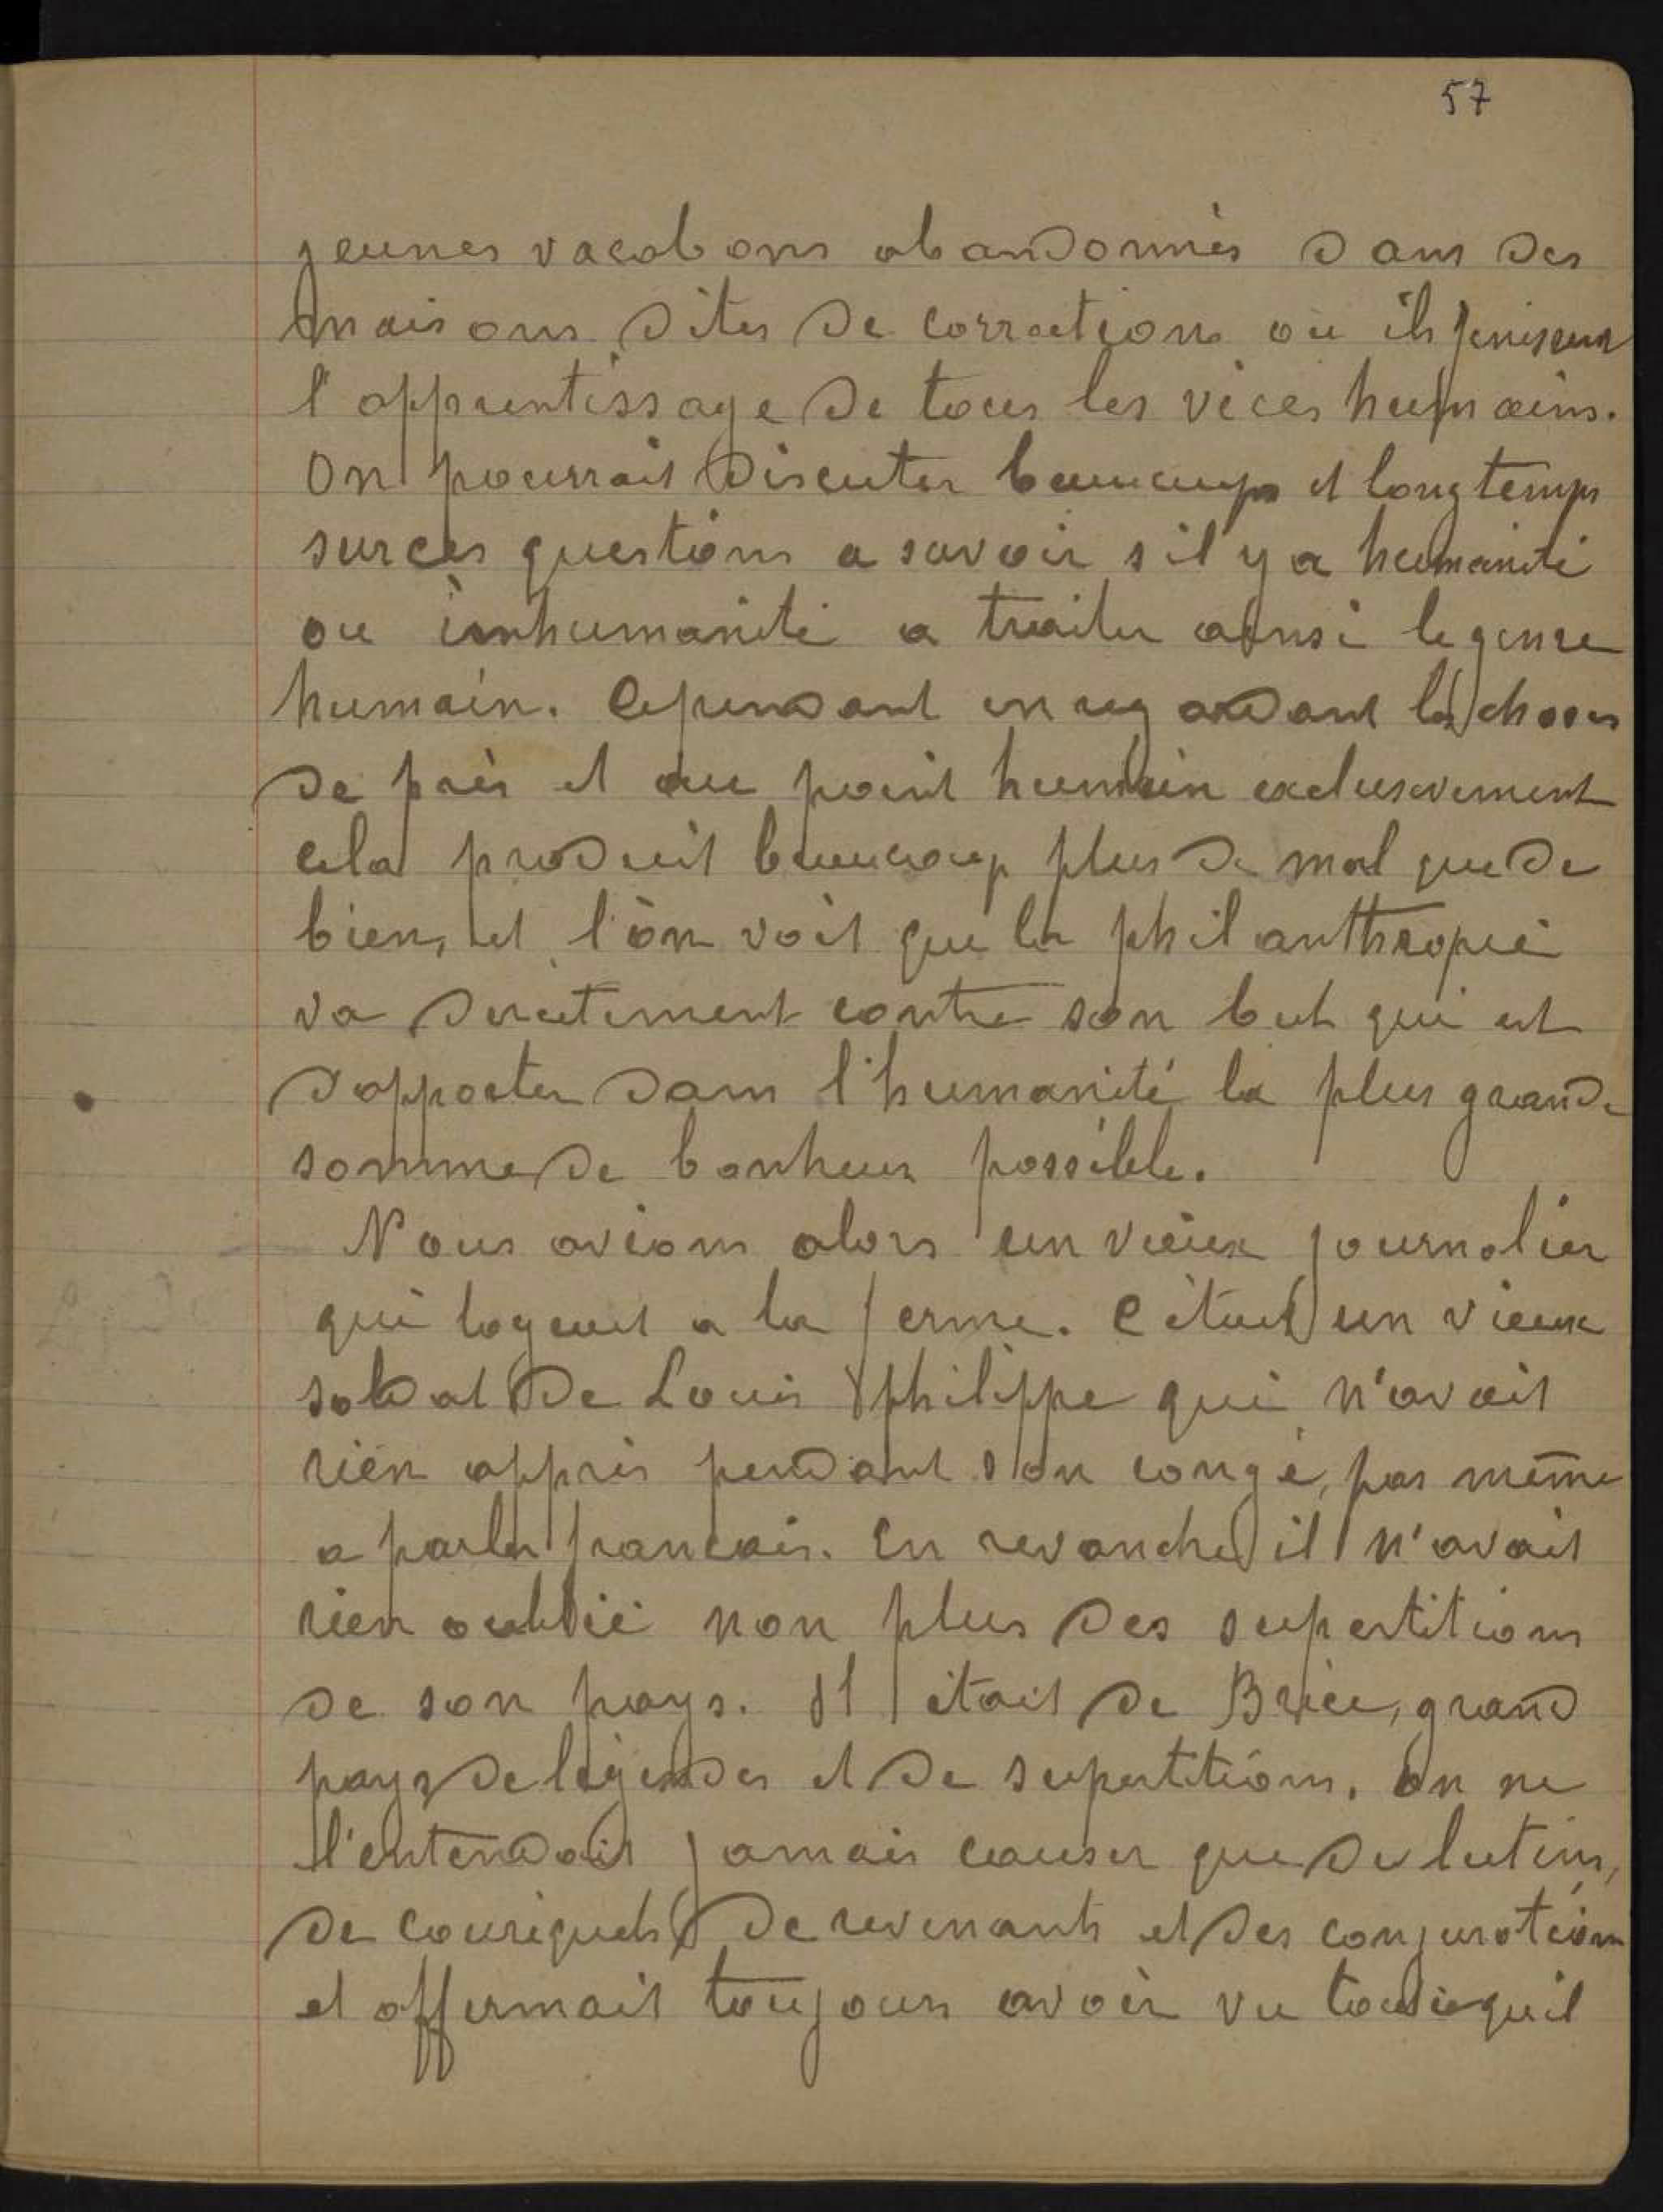 57
jeunes vacabons abandonnés dans des
maisons dites de corraction où ils finissent
l'apprentissage de tous les vices humains.
On pourrait discuter beaucoup et longtemps
sur ces questions a savoir s'il y a humanité
ou inhumanité a traiter ainsi le genre
humain. Cependant en regardant les choses
de près et au point humain exclusivement
cela produit beaucoup plus de mal que de
bien, et l'on voit que la philanthropie
va directement contre son but qui est
d'apporter dans l'humanité la plus grande
somme de bonheur possible.
Nous avions alors un vieux journalier
qui logeait a la ferme. C'était un vieux
soldat de Louis philippe qui n'avait
rien appris pendant son congé, pas même
a parler francais. En revanche il n'avait
rien oublié non plus des supertitions
de son pays. Il était de Briec, grand
pays de légendes et de supertitions. On ne
l'entendait jamais causer que de lutins,
de couriquets de revenants et des conjurations
et affirmait toujours avoir vu tout ce qu'il